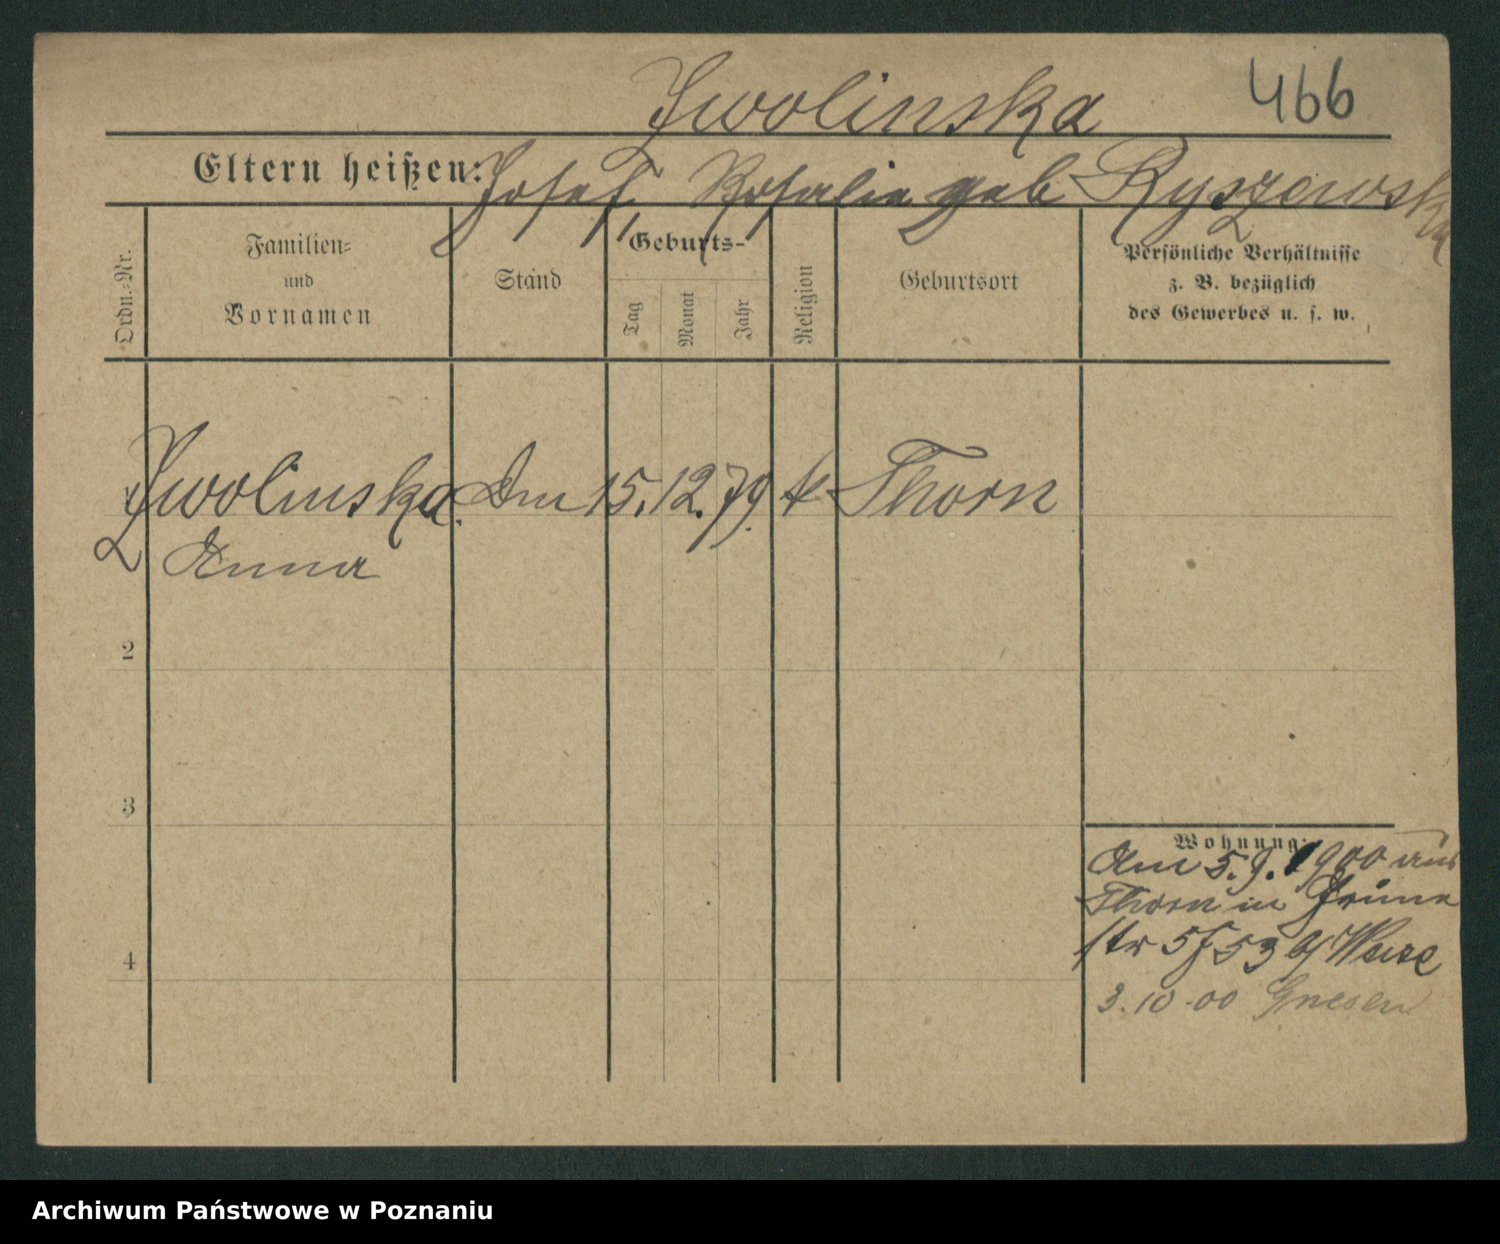 Zwolinska 466
Eltern heißen: Josef, Rosalie geb Ryszewska
Ordn.-Nr.
Familien-
und
Vornamen
Stand
Geburts-
Tag
Monat
Jahr
Religion
Geburtsort
Persönliche Verhältnisse
z. B. bezüglich
des Gewerbes u. s. w.
Zwolinska 15. 12. 79 k Thorn
Anna
2
3
4
Wohnung:
Am 5. 9. 1900 aus
Thorn in Grüne
str
3. 10 00 Gnesen
Archiwum Państwowe w Poznaniu